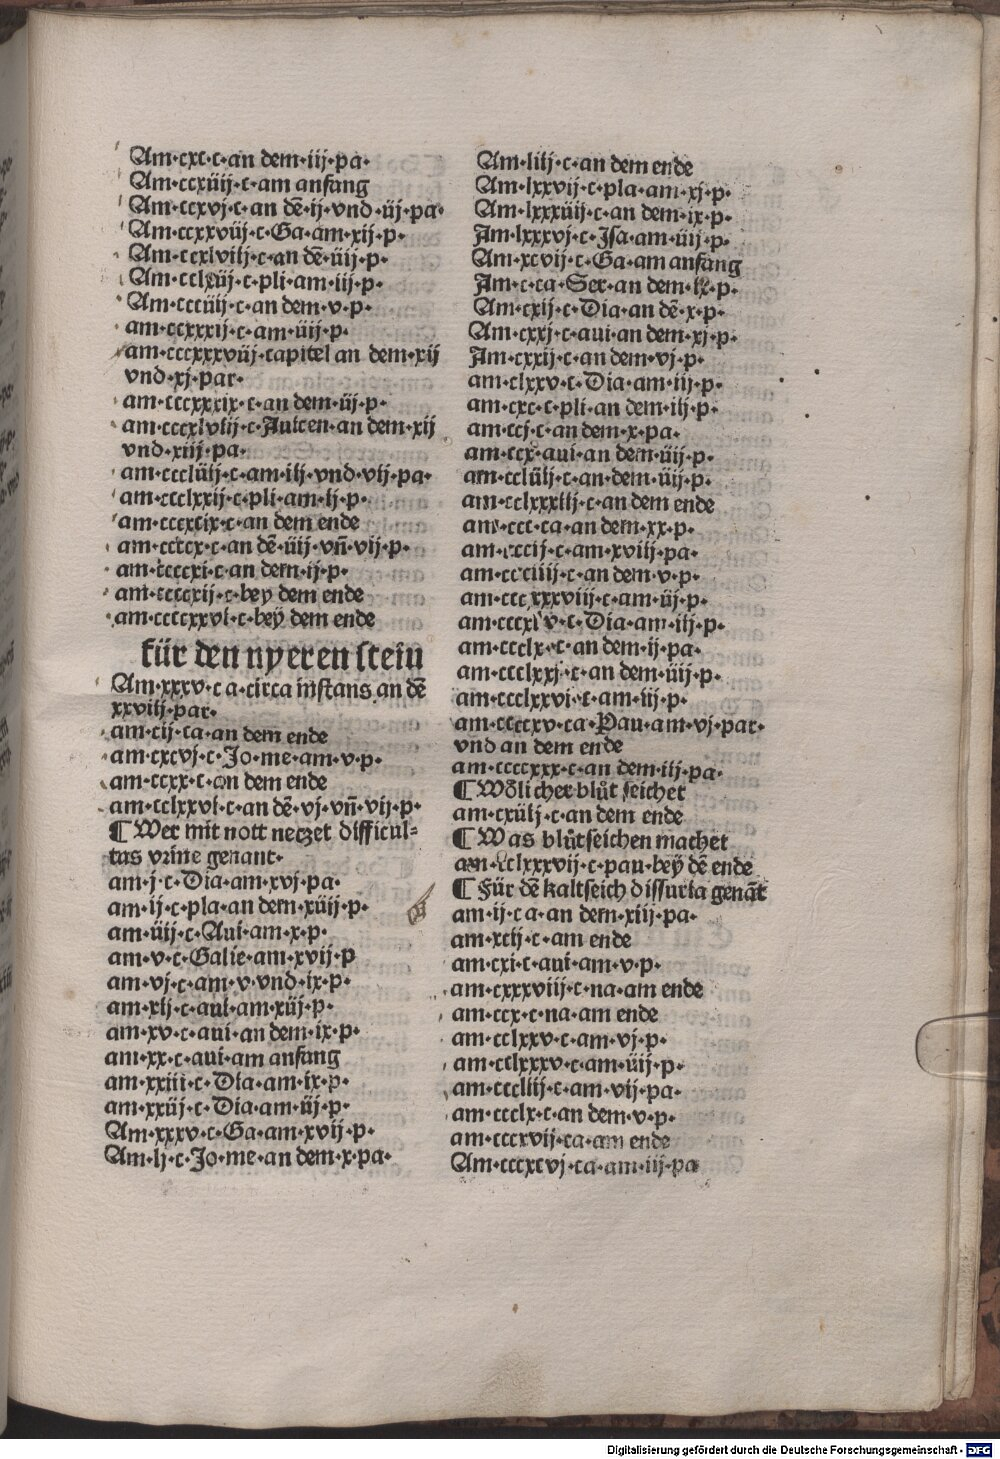 Am·cxc·c·an dem·iij·pa·
Am·ccxiiij·c·am anfang
Am·ccxvj·c·an dē·ij·vnd·iij·pa·
Am·ccxxviij·c·Ga·am·xij·p·
Am·ccxlviij·c·an dē·iiij·p·
Am·cclxiij·c·pli·am·iij·p·
Am·ccciiij·c·an dem·v·p·
am·ccxxxij·c·am·iiij·p·
am·cccxxxviij·capitel an dem·xij
vnd·xj·par·
am·cccxxxix·c·an dem·iij·p·
am·cccxlviij·c·Auicen·an dem·xij
vnd·xiij·pa·
am·cccliiij·c·am·iij·vnd·vij·pa·
am·ccclxxij·c·pli·am·ij·p·
am·cccxcix·c·an dem ende
am·ccccx·c·an dē·iiij·vn̄·vij·p·
am·ccccxi·c·an dem·ij·p·
am·ccccxij·c·bey dem ende
am·ccccxxvi·c·beÿ dem ende
für den nyeren stein
Am·xxxv·c a·circa instans·an dē
xxviij·par·
am·cij·ca·an dem ende
am·cxcvj·c·Jo·me·am·v·p·
am·ccxx·c·an dem ende
am·cclxxvi·c·an dē·vj·vn̄·vij·p·
¶ Wer mit nott neczet difficul=
tas vrine genant·
am·j·c·Dia·am·xvj·pa·
am·ij·c·pla·an dem·xiiij·p·
am·iiij·c·Aui·am·x·p·
am·v·c·Galie·am·xvij·p
am·vj·c·am·v·vnd·ix·p·
am·xij·c·aui·am·xiij·p·
am·xv·c·aui·an dem·ix·p·
am·xx·c·aui·am anfang
am·xxiii·c·Dia·am·ix·p·
am·xxiij·c·Dia·am·iij·p·
Am·xxxv·c·Ga·am·xvij·p·
Am·lj·c·Jo·me·an dem·x·pa·
Am·liij·c·an dem ende
Am·lxxvij·c·pla·am·xj·p·
Am·lxxxiiij·c·an dem·ix·p·
Am·lxxxvj·c·Isa·am·iiij·p·
Am·xcvij·c·Ga·am anfang
Am·c·ca·Ser·an dem·ix·p·
Am·cxij·c·Dia·an dē·x·p·
Am·cxxj·c·aui·an dem·xj·p·
Am·cxxij·c·an dem·vj·p·
am·clxxv·c·Dia·am·iij·p·
am·cxc·c·pli·an dem·iij·p·
am·ccj·c·an dem·x·pa·
am·ccx·aui·an dem·iiij·p·
am·ccliiij·c·an·dem·iiij·p·
am·cclxxxiij·c·an dem ende
am·ccc·ca·an dem·xx·p·
am·cccij·c·am·xviij·pa·
am·ccciiij·c·an dem·v·p·
am·cccxxxviij·c·am·iij·p·
am·cccxlv·c·Dia·am·iij·p·
am·ccclx·c·an dem·ij·pa·
am·ccclxxj·c·an dem·iiij·p·
am·ccclxxvi·c·am·iij·p·
am·ccccxv·ca·Pau·am·vj·par·
vnd an dem ende
am·ccccxxx·c·an dem·iij·pa·
¶ Wölicher blůt seichet
am·cxiiij·c·an dem ende
¶ Was blůtseichen machet
am·cclxxxvij·c·pau·beÿ dē ende
¶ Für dē kaltseich dissuria genāt
am·ij·c a·an dem·xiij·pa·
am·xcij·c·am ende
am·cxi·c·aui·am·v·p·
am·cxxxviij·c·na·am ende
am·ccx·c·na·am ende
am·cclxxv·c·am·vj·p·
am·cclxxxv·c·am·iiij·p·
am·cccliij·c·am·vij·pa·
am·ccclx·c·an dem·v·p·
am·cccxvij·ca·am ende
Am·cccxcvj·ca·am·iij·pa
Digitalisierung gefördert durch die Deutsche Forschungsgemeinschaft - DFG